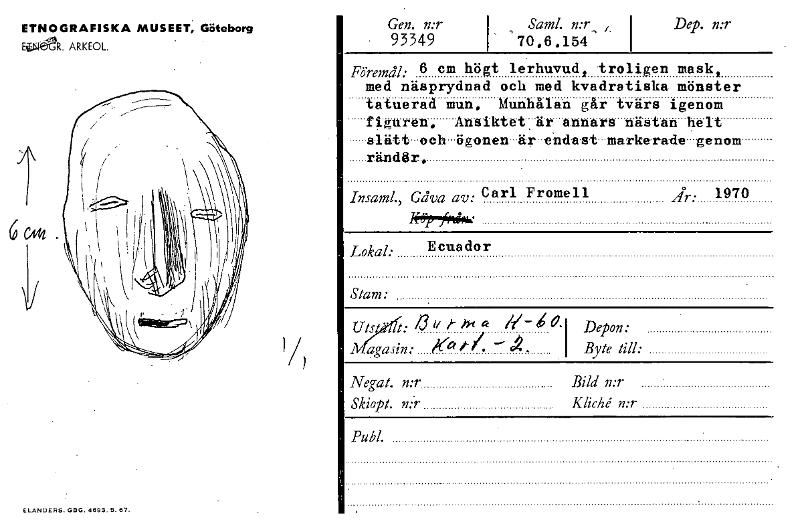 ETNOGRAFISKA MUSEET, Göteborg
ETNOGR. ARKEOL.
6 cm.
1/1
ELANDERS. GBG. 4693. 5. 67.
Gen. n:r
93349
Saml. n:r
70.6.154
Dep. n:r
Föremål: 6 cm högt lerhuvud, troligen mask,
med näsprydnad och med kvadratiska mönster
tatuerad mun. Munhålan går tvärs igenom
figuren. Ansiktet är annars nästan helt
slätt och ögonen är endast markerade genom
ränder.
Insaml., Gåva av: Carl Fromell År: 1970
Köp från:
Lokal: Ecuador
Stam:
Utställt: Burma H-60. Depon:
Magasin: Kart.-2. Byte till:
Negat. n:r Bild n:r
Skiopt. n:r Kliché n:r
Publ.